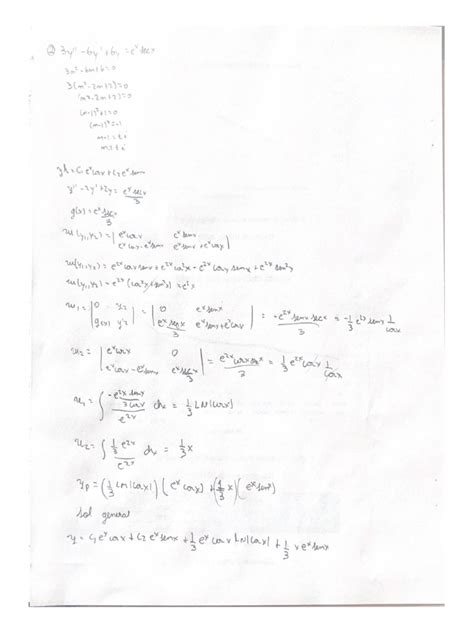 ② 3y'' - 6y' + 6y = e^x sec x
3m² - 6m + 6 = 0
3(m² - 2m + 2) = 0
(m² - 2m + 2) = 0
(m-1)² + 1 = 0
(m-1)² = -1
yh = C₁ e^x cos x + C₂ e^x sen x
y'' - 2y' + 2y = e^x sec x / 3
g(x) = e^x sec x / 3
w(y₁,y₂) = | e^x cos x   e^x sen x |
| e^x cos x - e^x sen x   e^x sen x + e^x cos x |
w(y₁,y₂) = e^2x cos x sen x + e^2x cos² x - e^2x cos x sen x + e^2x sen² x
w(y₁,y₂) = e^2x (cos² x + sen² x) = e^2x
w₁ = | 0   y₂ | = | 0   e^x sen x | = -e^2x sen x sec x / 3 = -1/3 e^2x sen x 1/cos x
| g(x)   y'₂ |   | e^x sec x / 3   e^x sen x + e^x cos x |
w₂ = | e^x cos x   0 | = e^2x cos x sec x / 3 = 1/3 e^2x cos x 1/cos x
| e^x cos x - e^x sen x   e^x sec x / 3 |
u₁ = ∫ (-e^2x sen x / 3 cos x) / e^2x dx = 1/3 LN|cos x|
u₂ = ∫ (1/3 e^2x) / e^2x dx = 1/3 x
yp = (1/3 LN|cos x|) (e^x cos x) + (1/3 x) (e^x sen x)
sol general
y = C₁ e^x cos x + C₂ e^x sen x + 1/3 e^x cos x LN|cos x| + 1/3 x e^x sen x